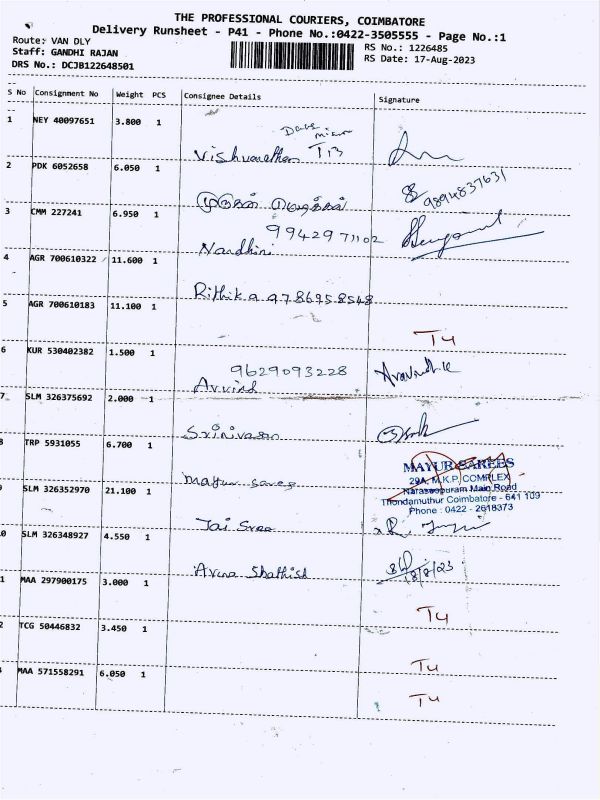 THE PROFESSIONAL COURIERS, COIMBATORE
Delivery Runsheet - P41 - Phone No.:0422-3505555 - Page No.:1
Route: VAN DLY
RS No.: 1226485
Staff: GANDHI RAJAN
RS Date: 17-Aug-2023
DRS No.: DCJB122648501
S No Consignment No Weight PCS Consignee Details Signature
1 NEY 40097651 3.800 1
Vishvanathan T13
2 PDK 6052658 6.050 1
9894837631
முருகன்
3 CMM 227241 6.950 1
9942971102
Nandhini
4 AGR 700610322 11.600 1
Rithika 9786958548
5 AGR 700610183 11.100 1
T4
6 KUR 530402382 1.500 1
9629093228
Arvind
7 SLM 326375692 2.000 1
Srinivasan
8 TRP 5931055 6.700 1
MAYUR SAREES
29A, M.K.P. COMPLEX
Mayur sarees
Naraseepuram Main Road
Thondamuthur Coimbatore - 641 109
Phone : 0422 - 2618373
9 SLM 326352970 21.100 1
Jai Sree
0 SLM 326348927 4.550 1
18/8/23
Aruna Shathish
1 MAA 297900175 3.000 1
T4
2 TCG 50446832 3.450 1
T4
MAA 571558291 6.050 1
T4